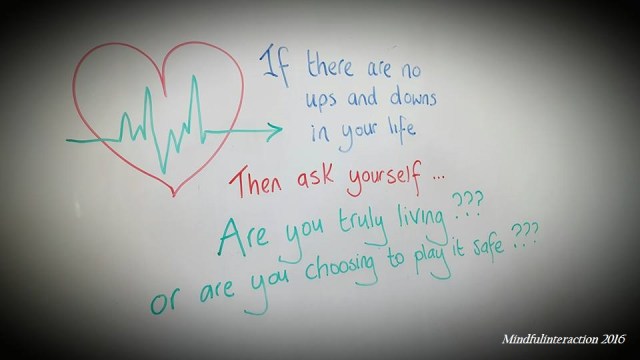 If there are no
ups and downs
in your life
Then ask yourself...
Are you truly living???
or are you choosing to play it safe???
Mindfulinteraction 2016